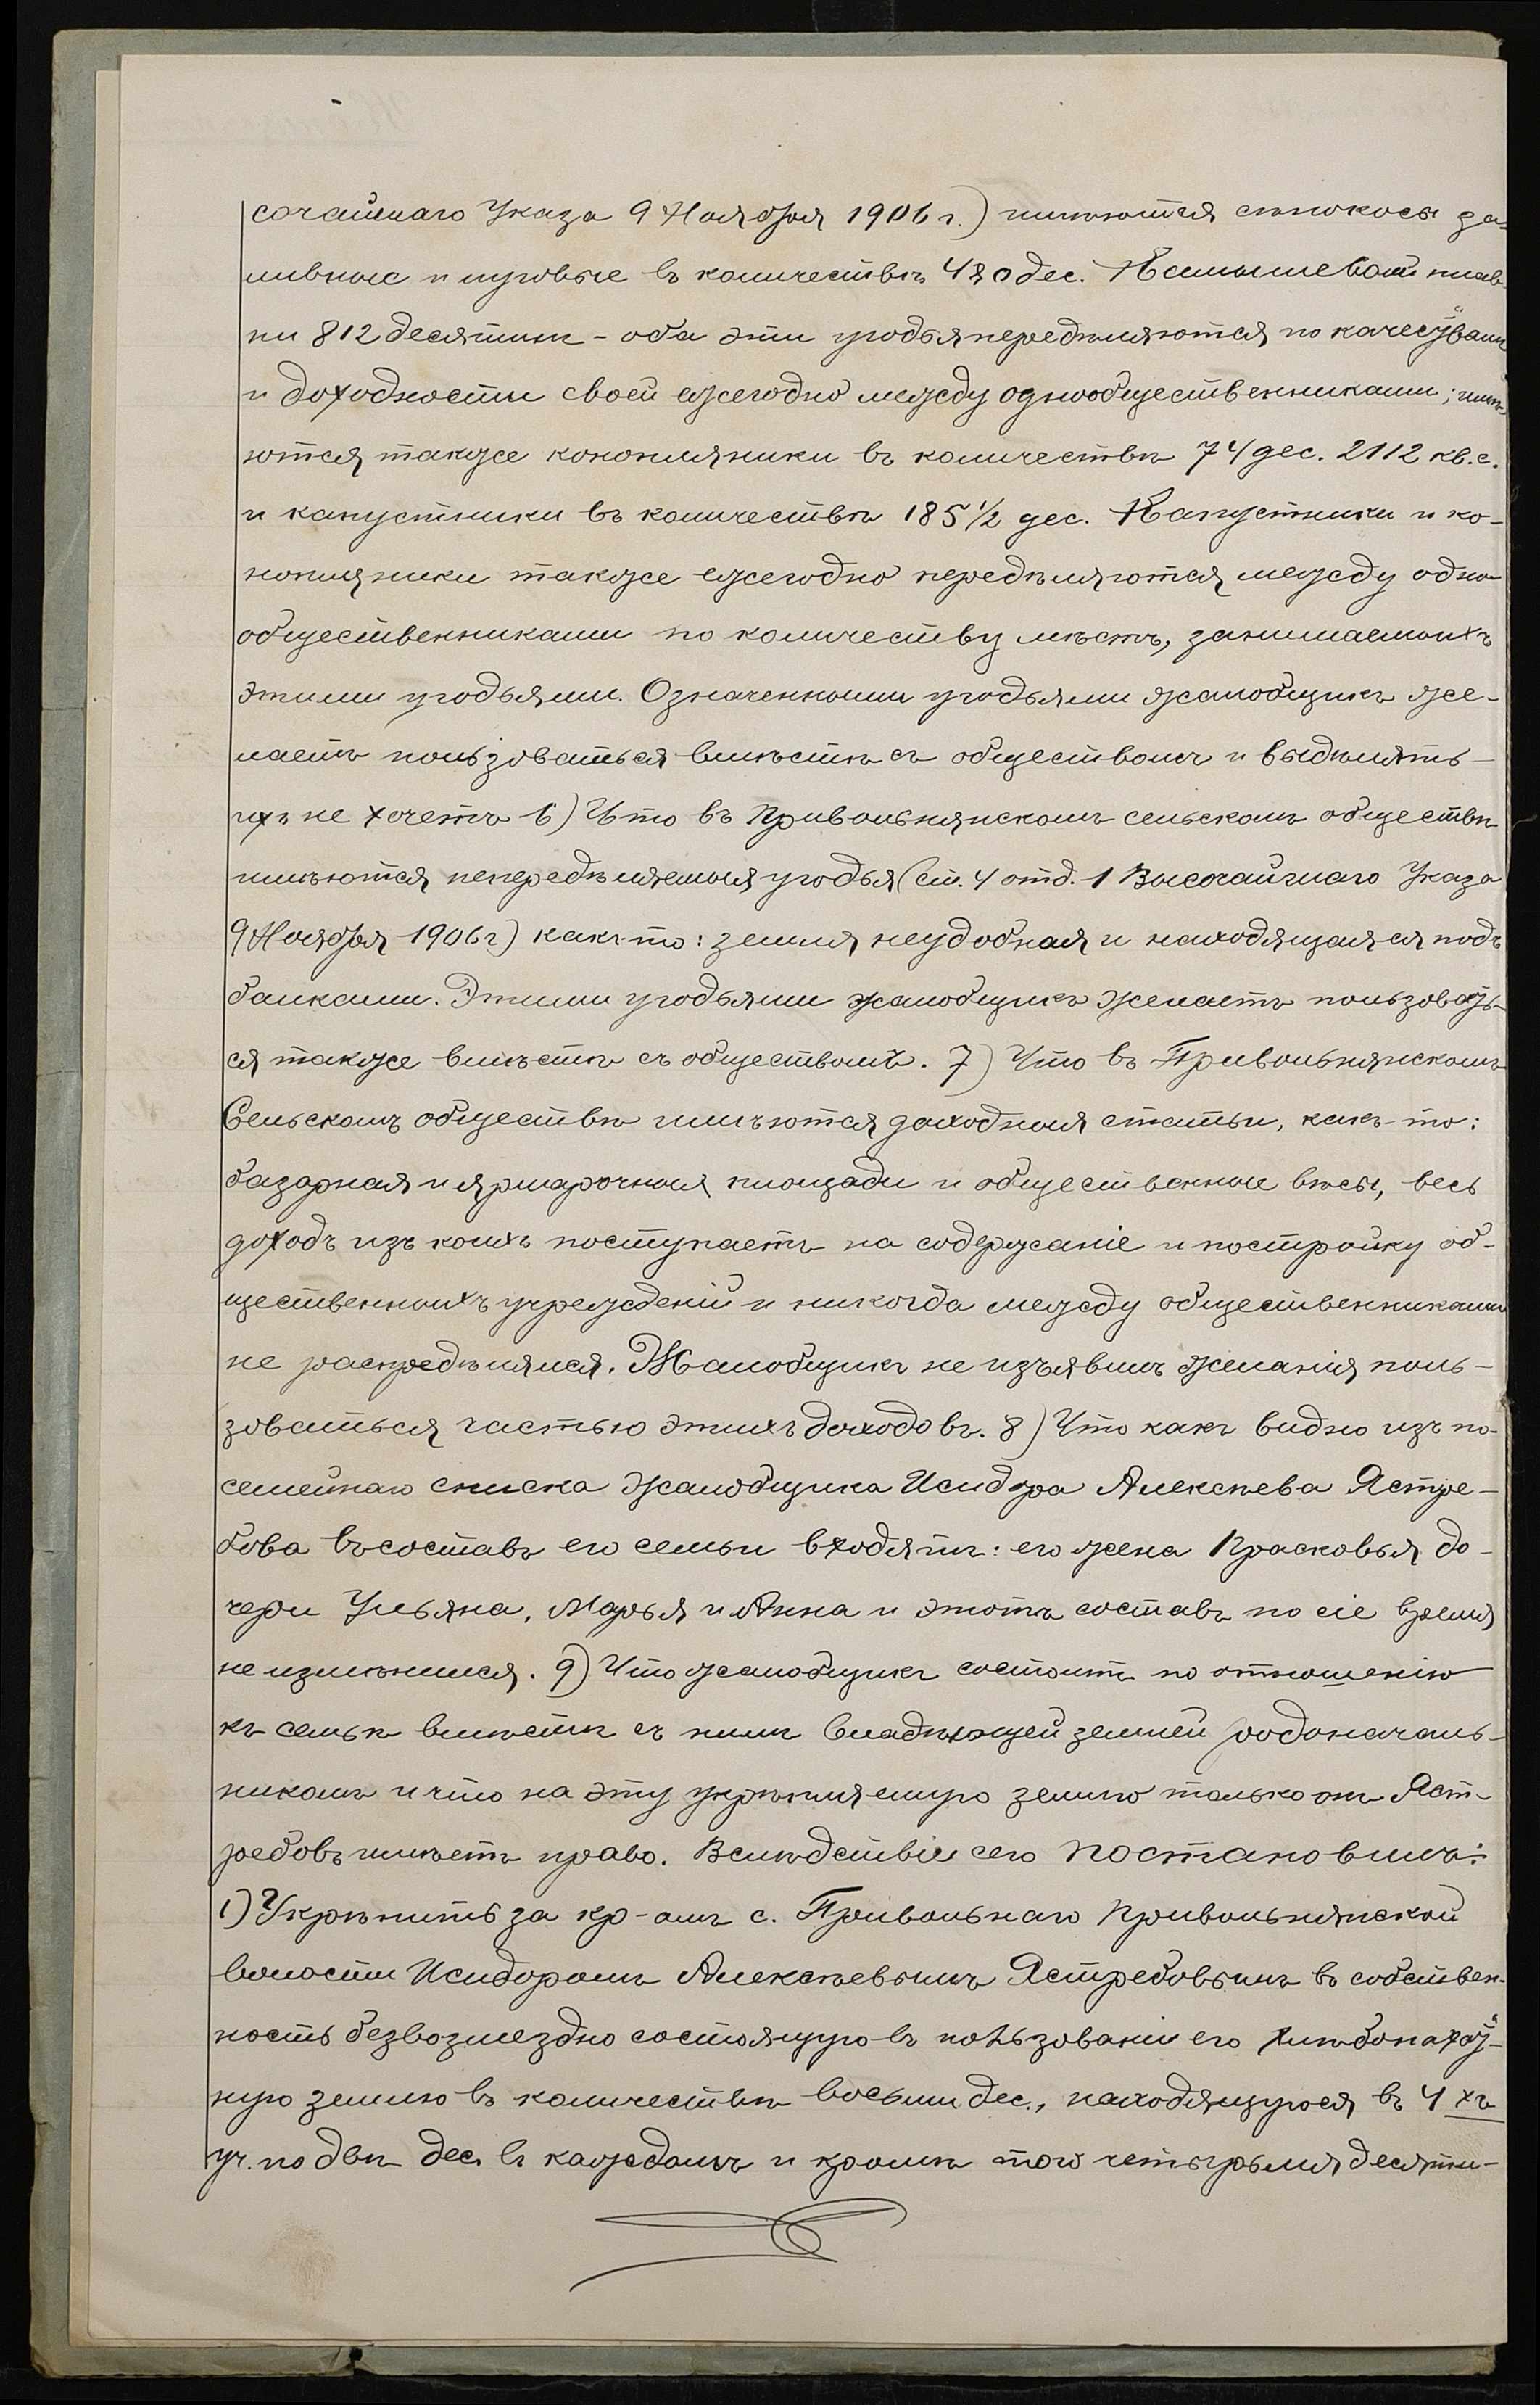 сочайшаго Указа 9 Ноября 1906 г.) имѣются сѣнокосы за-
ливные и луговые въ количествѣ 480 дес. Камышевой плав-
ни 812 десятинъ - оба эти угодья передѣляются по качествамъ
и доходности своей ежегодно между однообщественниками; имѣ-
ются также конопляники въ количествѣ 74 дес. 2112 кв. с.
и капустники въ количествѣ 185 1/2 дес. Капустники и ко-
нопляники также ежегодно передѣляются между одно-
общественниками по количеству мѣстъ, занимаемыхъ
этими угодьями. Означенными угодьями жалобщикъ же-
лаетъ пользоваться вмѣстѣ съ обществомъ и выдѣлять-
ихъ не хочетъ 6) Что въ Привольнянскомъ сельскомъ обществѣ
имѣются непередѣляемыя угодья (ст. 4 отд. 1 Высочайшаго Указа
9 Ноября 1906 г) какъ-то: земля неудобная и находящаяся подъ
балками. Этими угодьями жалобщикъ желаетъ пользовать-
ся также вмѣстѣ съ обществомъ. 7) Что въ Привольнянскомъ
Сельскомъ обществѣ имѣются доходныя статьи, какъ-то:
базарная и ярмарочныя площади и общественные вѣсы, весь
доходъ изъ коихъ поступаетъ на содержаніе и постройку об-
щественныхъ учрежденій и никогда между общественниками
не распредѣлялся. Жалобщикъ не изъявилъ желанія поль-
зоваться частью этихъ доходовъ. 8) Что какъ видно изъ по-
семейнаго списка жалобщика Исидора Алексѣева Ястре-
бова въ составъ его семьи входятъ: его жена Прасковья до-
чери Ульяна, Марья и Анна и этотъ составъ по сіе время
не измѣнился. 9) Что жалобщикъ состоитъ по отношенію
къ семьѣ вмѣстѣ съ нимъ владѣющей землей родоначаль-
никомъ и что на эту укрѣпляемую землю только онъ Яст-
ребовъ имѣетъ право. Вслѣдствіи сего постановилъ:
1) Укрѣпить за кр-омъ с. Привольнаго Привольнянской
волости Исидоромъ Алексѣевымъ Ястребовымъ въ собствен-
ность безвозмездно состоящую въ пользованіи его хлѣбопахот-
ную землю въ количествѣ восьми дес., находящуюся въ 4 хъ
уч. по двѣ дес. въ каждомъ и кромѣ того четырьмя десяти-